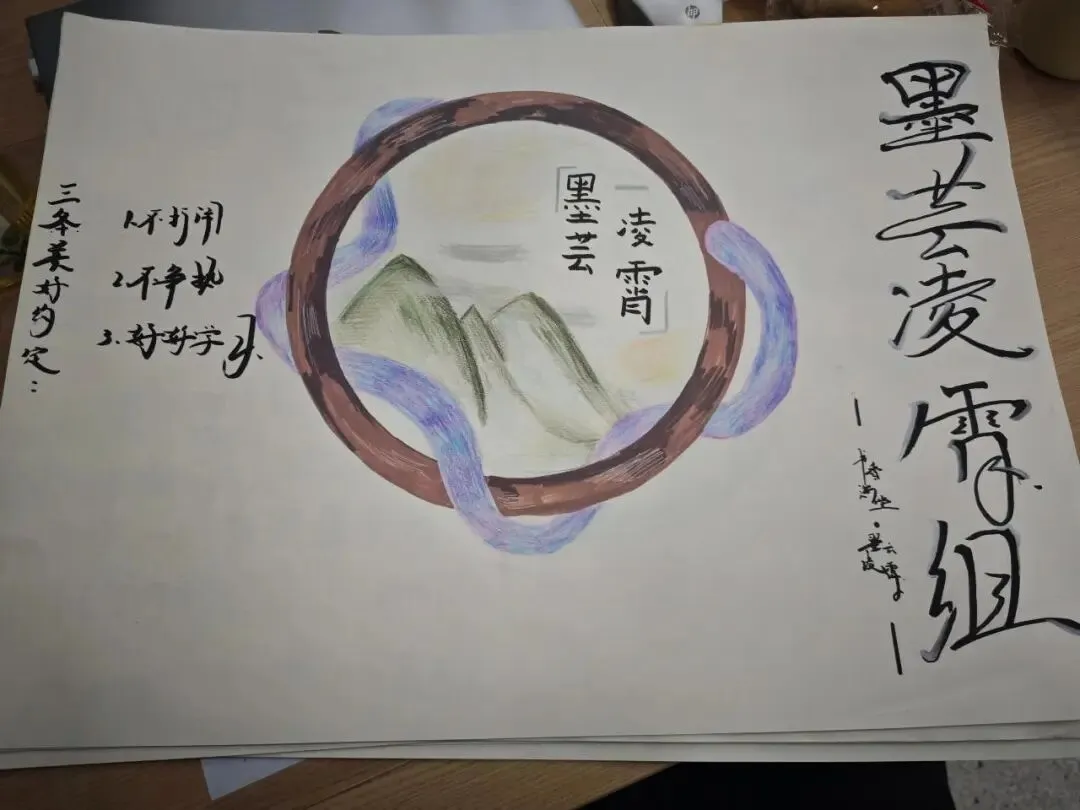 墨芸凌霄组
书香满堂·墨云凌霄
「墨芸
凌霄」
三条美好约定：
1.不打闹
2.不争执
3.好好学习.
hp